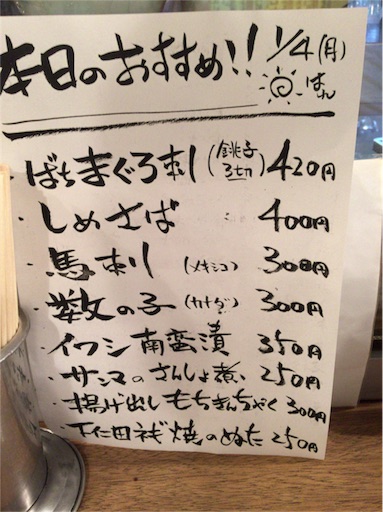 本日のおすすめ!! 1/4(月)
ばん
ばちまぐろ刺(銚子3切) 420円
・しめさば 400円
・馬刺(メキシコ) 300円
・数の子(カナダ) 300円
・イワシ南蛮漬 350円
・サンマのさんしょ煮 250円
・揚げ出しもちきんちゃく 300円
・下仁田ネギ焼のぬた 250円